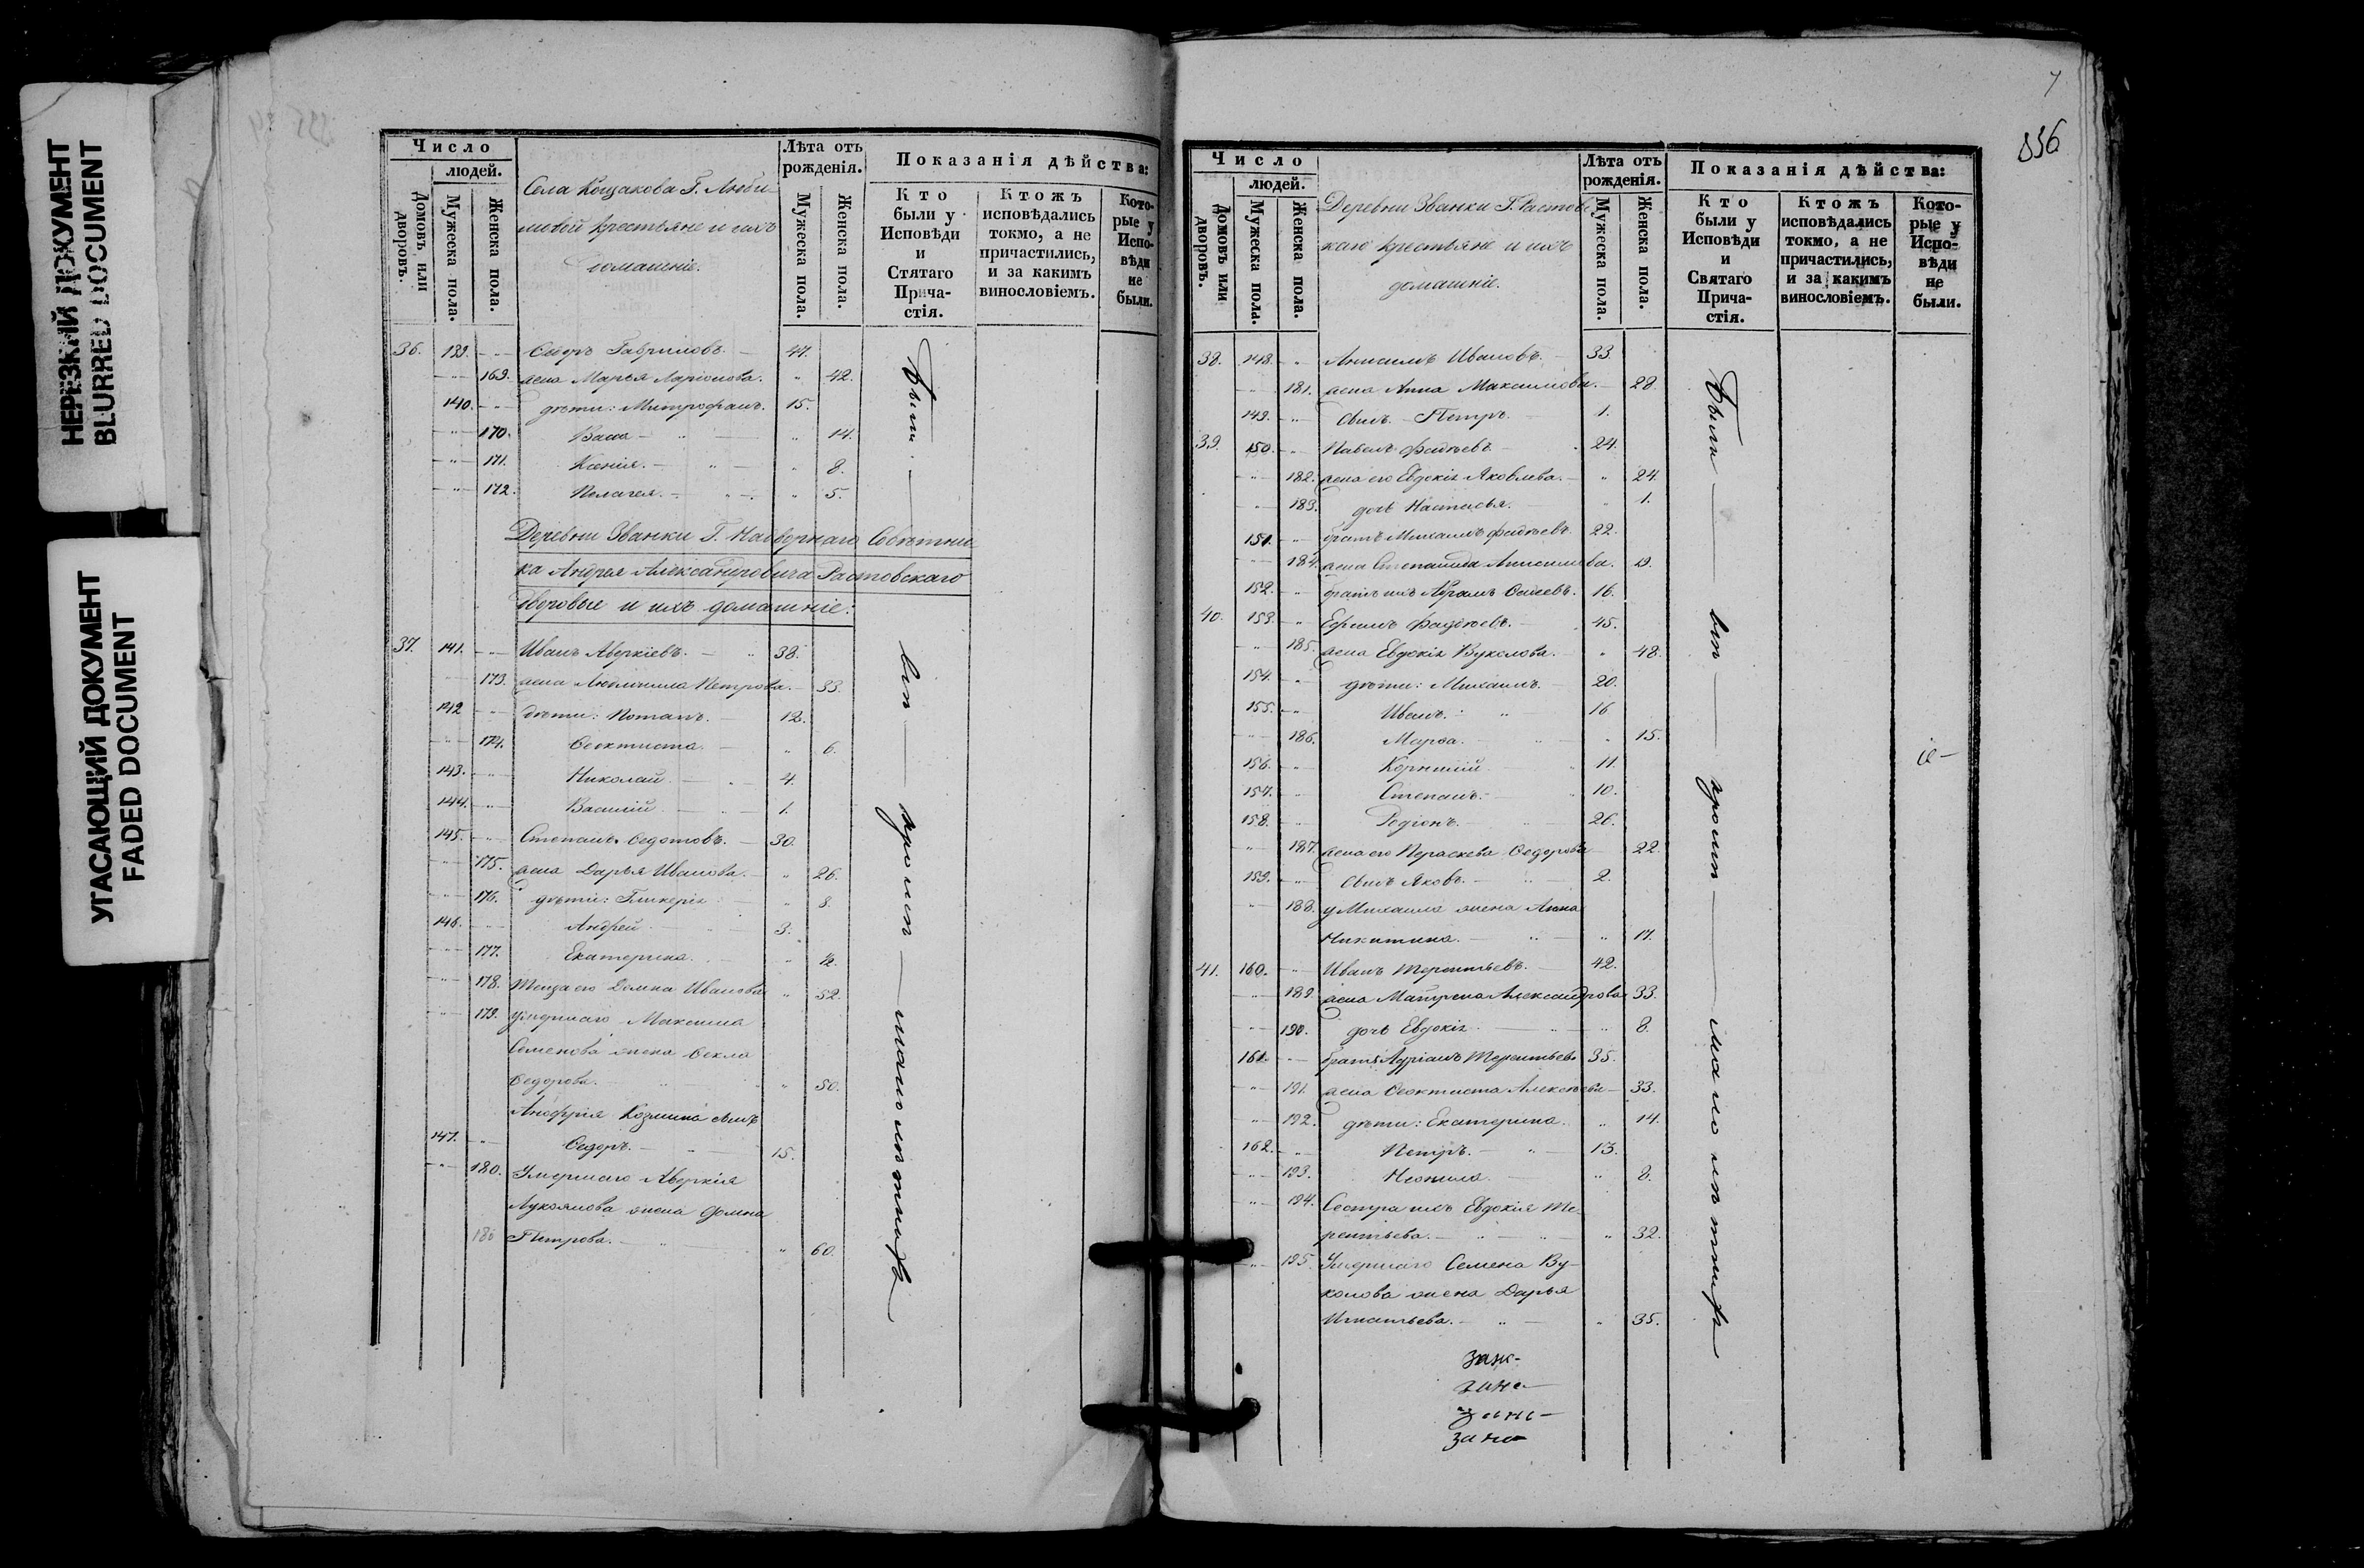 НЕРЕЗКИЙ ДОКУМЕНТ
BLURRED DOCUMENT
УГАСАЮЩИЙ ДОКУМЕНТ
FADED DOCUMENT
Число
людей.
Домовъ или дворовъ.
Мужеска пола.
Женска пола.
Села Кощакова Г. Люби-
мовой крестьяне и ихъ
домашніе.
Лѣта отъ рожденія.
Мужеска пола.
Женска пола.
Показанія дѣйства:
Кто были у Исповѣди и Стятаго Прича-стія.
Ктожъ исповѣдались токмо, а не причастились, и за какимъ винословіемъ.
Кото-рые у Испо-вѣди не были.
36. 139. Сидръ Гавриловъ. 47.
169. жена Марья Ларіонова. 42.
140. дѣти: Митрофанъ. 15.
170. Васса 14.
171. Ксенія. 8.
172. Пелагея. 5.
Деревни Званки Г. Надворнаго Совѣтни
ка Андрея Александровича Растовскаго
дворовые и ихъ домашніе:
37. 141. Иванъ Аверкіевъ. 38.
173. жена Людмила Петрова. 33.
142 дѣти: Романъ. 12.
174. Ѳеоктиста. 6.
143. Николай 4.
144. Василій 1.
145. Степанъ Ѳедотовъ. 30.
175. жена Дарья Иванова. 26.
176. дѣти: Гликерія 8.
146. Андрей 3.
177. Екатерина. ½.
178. Теща его Домна Иванова 52.
179. умершаго Максима
Семенова жена Ѳекла
Ѳедорова. 50.
Анофрія Козмина сынъ
147. Ѳедоръ. 15.
180. Умершаго Аверкія
Лукоянова жена Домна
180 Петрова. 60.
Были всѣ кромѣ малолѣтнихъ
7
336
Число
людей.
Домовъ или дворовъ.
Мужеска пола.
Женска пола.
Деревни Званки Г. Растовс
каго крестьяне и ихъ
домашніе.
Лѣта отъ рожденія.
Мужеска пола.
Женска пола.
Показанія дѣйства:
Кто были у Исповѣди и Святаго Прича-стія.
Ктожъ исповѣдались токмо, а не причастились, и за какимъ винословіемъ.
Кото-рые у Испо-вѣди не были.
38. 148. Анисимъ Ивановъ. 33.
181. жена Анна Максимова. 28.
149. сынъ Петръ. 1.
39. 150. Павелъ Фадѣевъ 24.
182. жена его Евдокія Яковлева. 24.
183. дочь Настасья. 1.
151. братъ Михаилъ Фадѣевъ. 22.
184. жена Степанида Анисимова. 19.
152. братъ ихъ Абрамъ 16.
40. 153. Ефимъ Фаддѣевъ. 45.
185. жена Евдокія Вуколова. 48.
154. дѣти: Михаилъ. 20.
155. Иванъ. 16
186. Марѳа. 15.
156. Корнилій 11.
157. Степанъ. 10.
158. Родіонъ. 26.
187. жена его Параскева Ѳедорова 22.
159. сынъ Яковъ. 2.
188. у Михаила жена Анна
Никитина. 17.
41. 160. Иванъ Терентьевъ. 42.
189. жена Матрена Александрова 33.
190. дочь Евдокія 8.
161. братъ Адріанъ Терентьевъ 35.
191. жена Ѳеоктиста Алексѣева 33.
192. дѣти: Екатерина. 14.
162. Петръ. 13.
193. Неонила. 8.
194. Сестра ихъ Евдокія Те-
рентьева. 32.
195. Умершаго Семена Ву-
колова жена Дарья
Игнатьева. 35.
Были всѣ кромѣ малолѣтнихъ